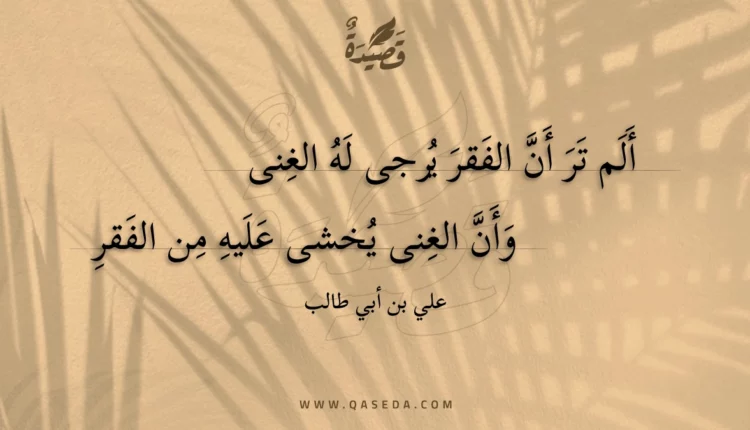 قَصِيْدَةٌ
أَلَم تَرَ أَنَّ الفَقرَ يُرجى لَهُ الغِنى
وَأَنَّ الغِنى يُخشى عَلَيهِ مِن الفَقرِ
علي بن أبي طالب
WWW.QASEDA.COM